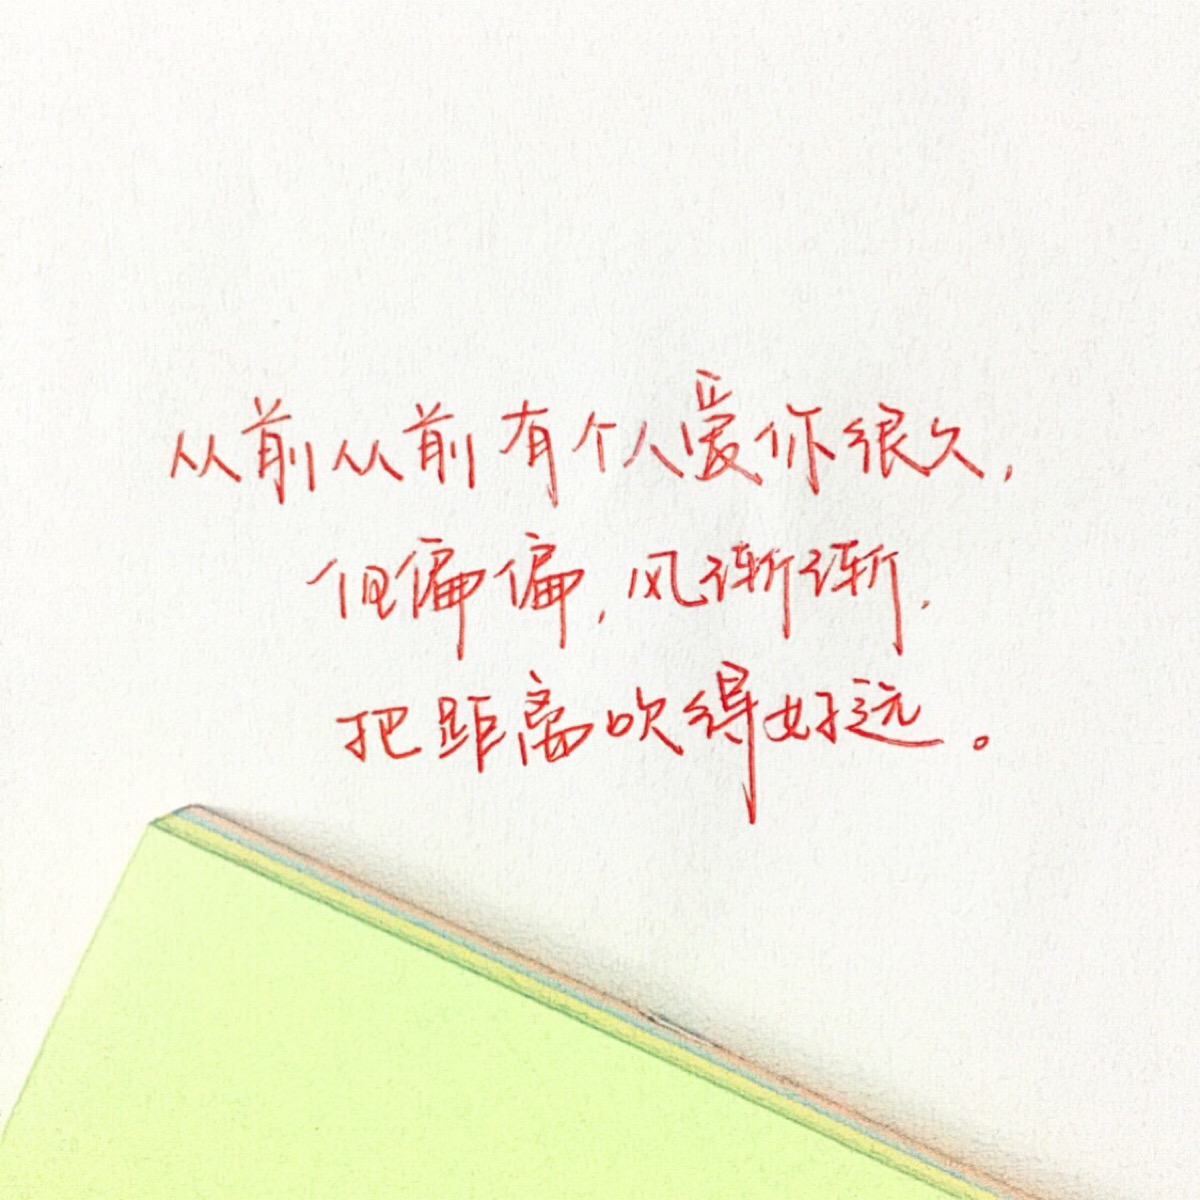 从前从前有个人爱你很久,
但偏偏,风渐渐,
把距离吹得好远。